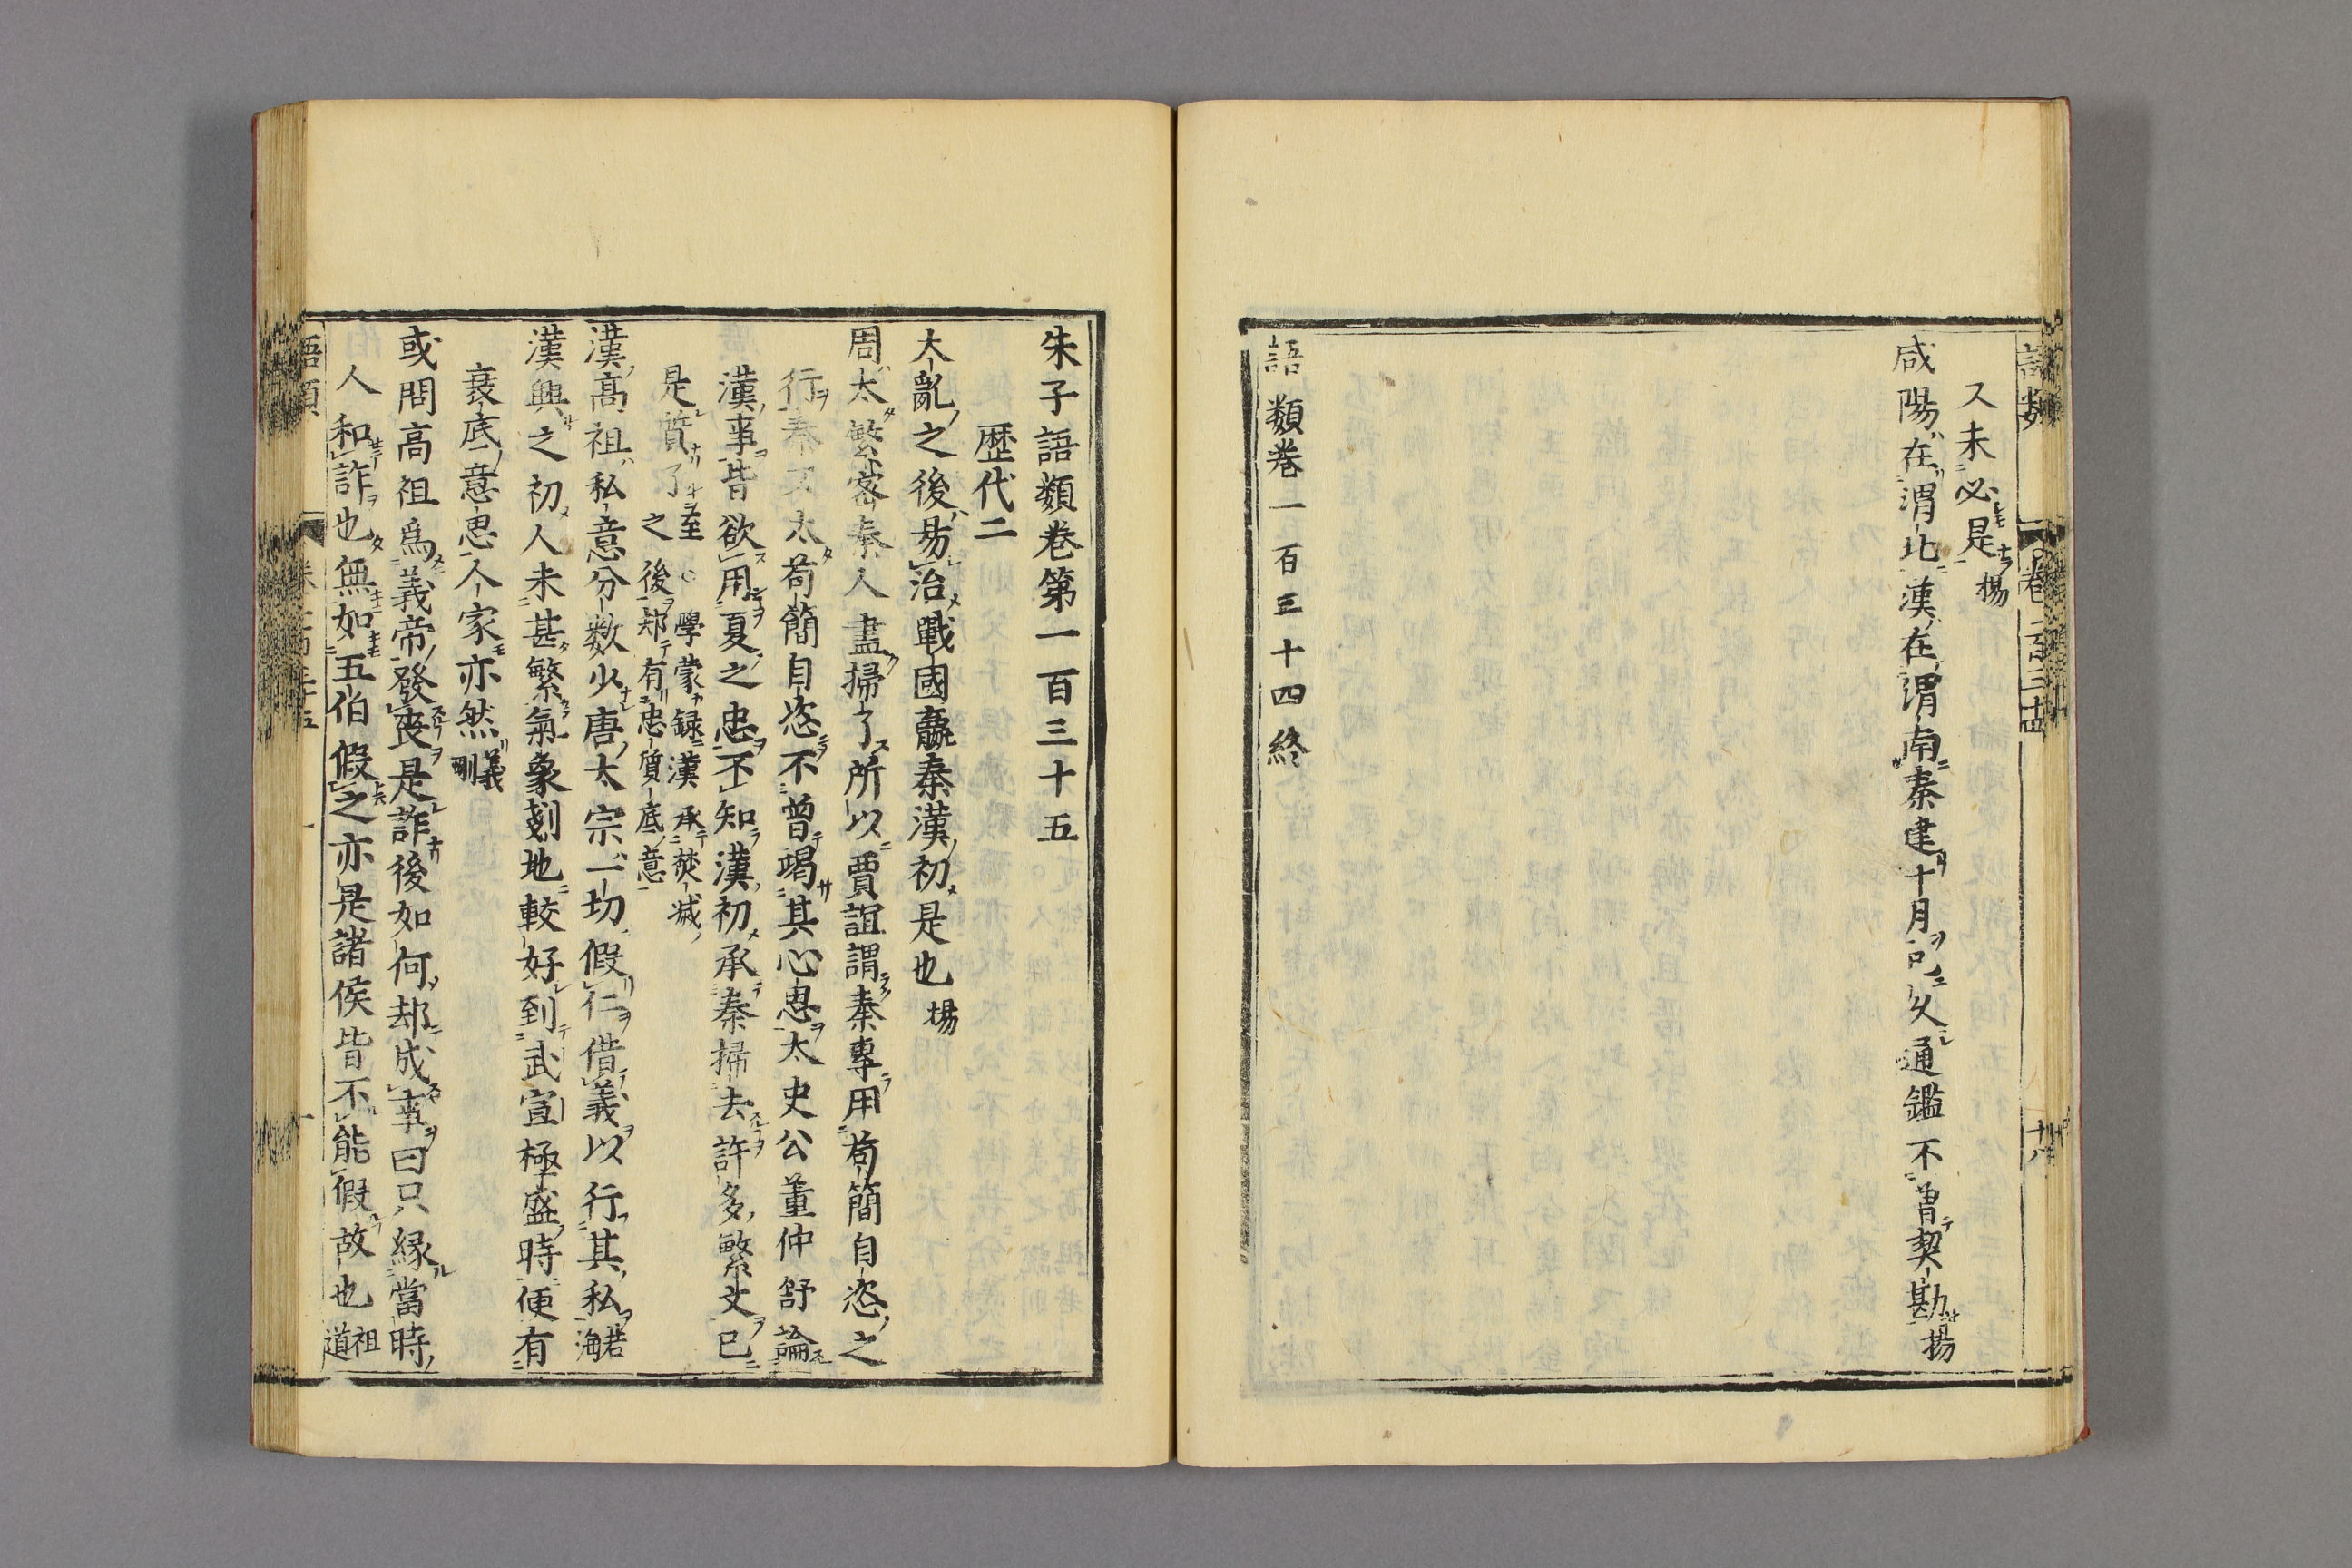 又未必是揚
咸陽在渭北漢在渭南秦建十月已久通鑑不曽契勘揚
語類巻一百三十四終
朱子語類巻第一百三十五
歴代二
大亂之後易治戰國嬴秦漢初是也揚
周太繁密秦人盡掃了所以賈誼謂秦專用苟簡自恣之
行秦又太苟簡自恣不曽竭其心思太史公董仲舒論
漢事皆欲用夏之忠不知漢初承秦掃去許多繁文已
是質了至○學蒙録漢承焚滅
之後却有忠質底意
漢高祖私意分数少唐太宗一切假仁借義以行其私若海
漢興之初人未甚繁氣象剗地較好到武宣極盛時便有
衰底意思人家亦然義剛
或問高祖爲義帝發喪是詐後如何却成事曰只縁當時
人和詐也無如五伯假之亦是諸侯皆不能假故也祖道